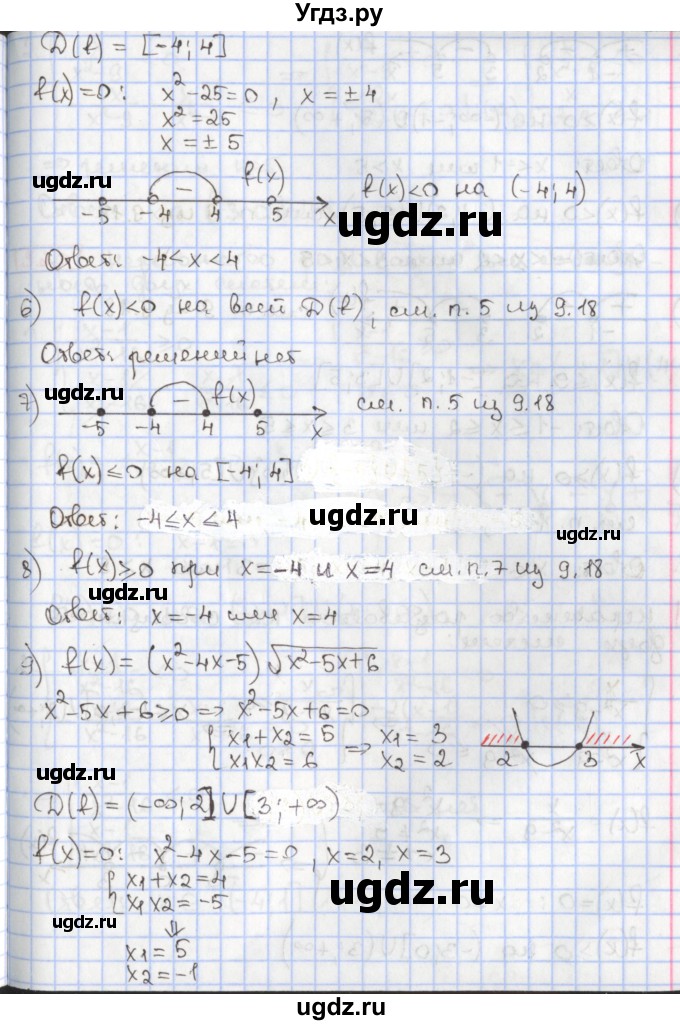 Угдз.ру
D(f) = [-4; 4]
f(x)=0: x²-25=0, x=±4
x²=25
x=±5
ugdz.ru
ugdz.ru
f(x)
-
f(x)<0 на (-4; 4)
-5 -4 4 5 x
ugdz.ru
Ответ: -4<x<4
6) f(x)<0 на всей D(f), см. п. 5 из 9.18
Ответ: решений нет
ugdz.ru
7) - f(x) см. п. 5 из 9.18
-5 -4 4 5 x
f(x)≤0 на [-4; 4]
Ответ: -4≤x≤4
ugdz.ru
ugdz.ru
8) f(x)≥0 при x=-4 и x=4 см. п. 7 из 9.18
Ответ: x=-4 или x=4
9) f(x)=(x²-4x-5)√x²-5x+6
x²-5x+6≥0 => x²-5x+6=0
{ x1+x2=5 => x1=3
x1x2=6 x2=2
2 3 x
ugdz.ru
D(f)=(-∞; 2]∪[3; +∞)
f(x)=0: x²-4x-5=0, x=2, x=3
{ x1+x2=4
x1x2=-5
ugdz.ru
ugdz.ru
⇓
x1=5
x2=-1
ugdz.ru